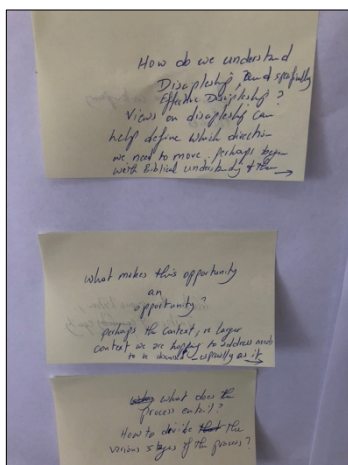 How do we understand
Discipleship, and specifically
Effective Discipleship?
Views on discipleship can
help define which direction
we need to move. Perhaps begin
with Biblical understanding & then →
What makes this opportunity
an
opportunity?
perhaps the context, or larger
context we are hoping to address needs
to be discussed - especially as it →
What does the
process entail?
How to decide the
various stages of the process?